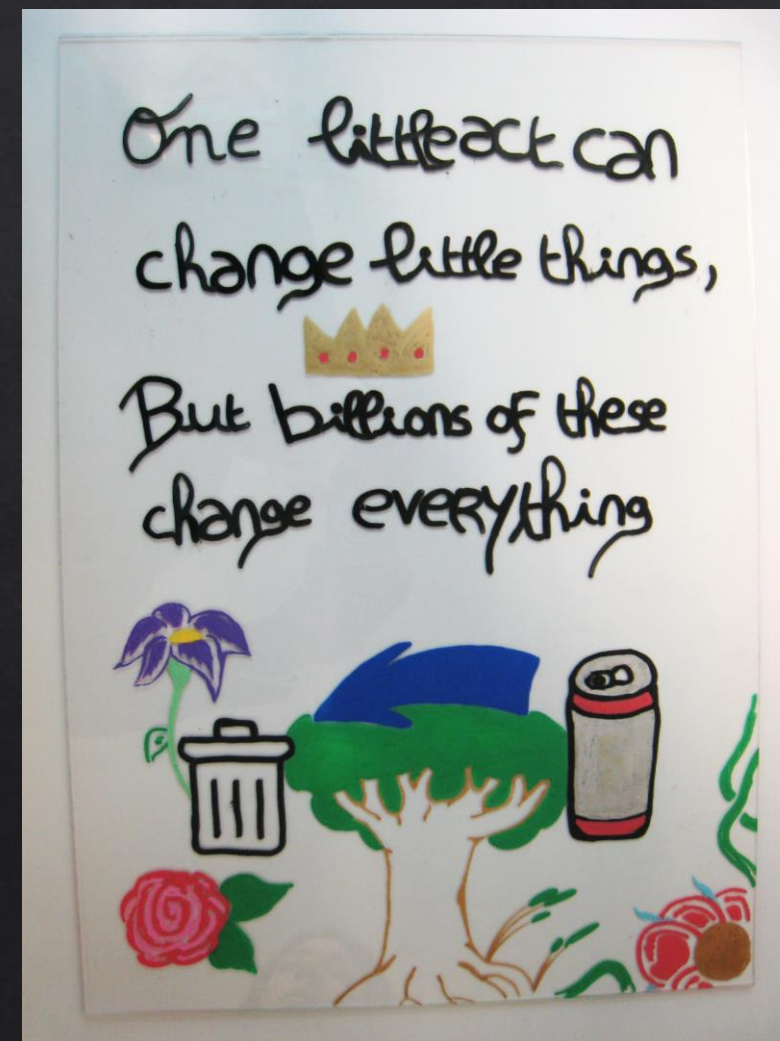 One little act can
change little things,
But billions of these
change everything